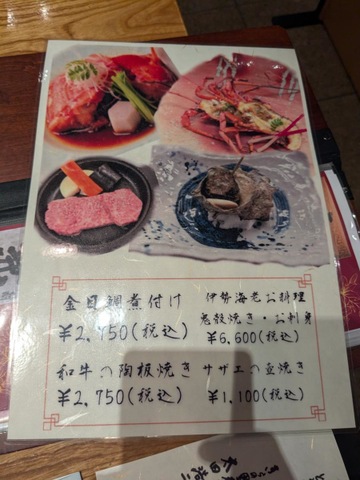 金目鯛煮付け
¥2,750(税込)
伊勢海老お料理
鬼殻焼き・お刺身
¥6,600(税込)
和牛の陶板焼き
¥2,750(税込)
サザエの壺焼き
¥1,100(税込)